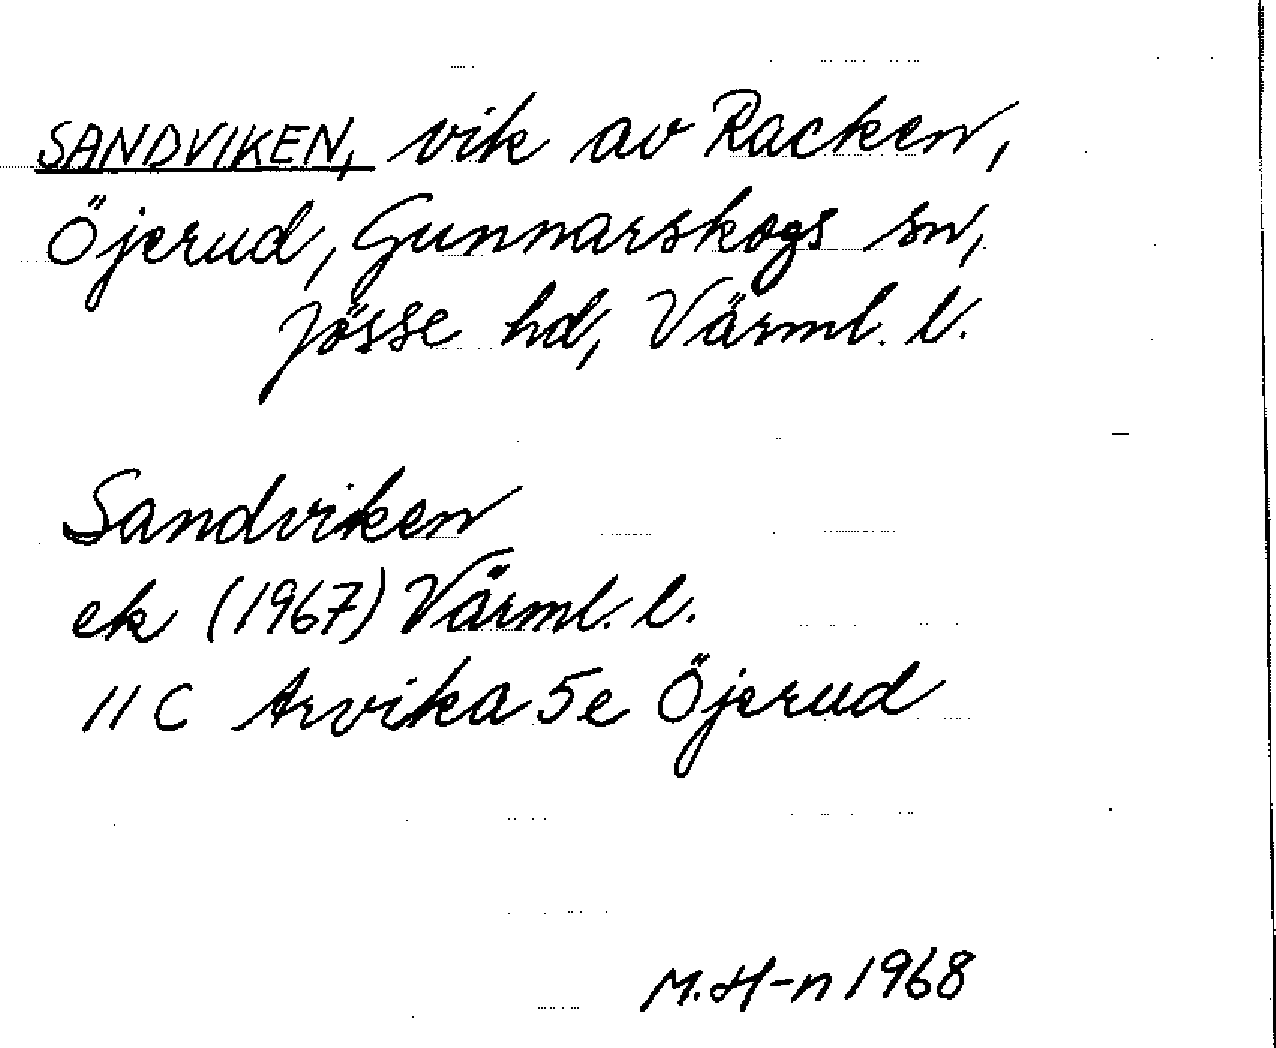 SANDVIKEN, vik av Racken,
Öjerud, Gunnarskogs sn,
Jösse hd, Värml. l.
Sandviken
ek (1967) Värml. l.
11 C Arvika 5e Öjerud
M.H-n 1968